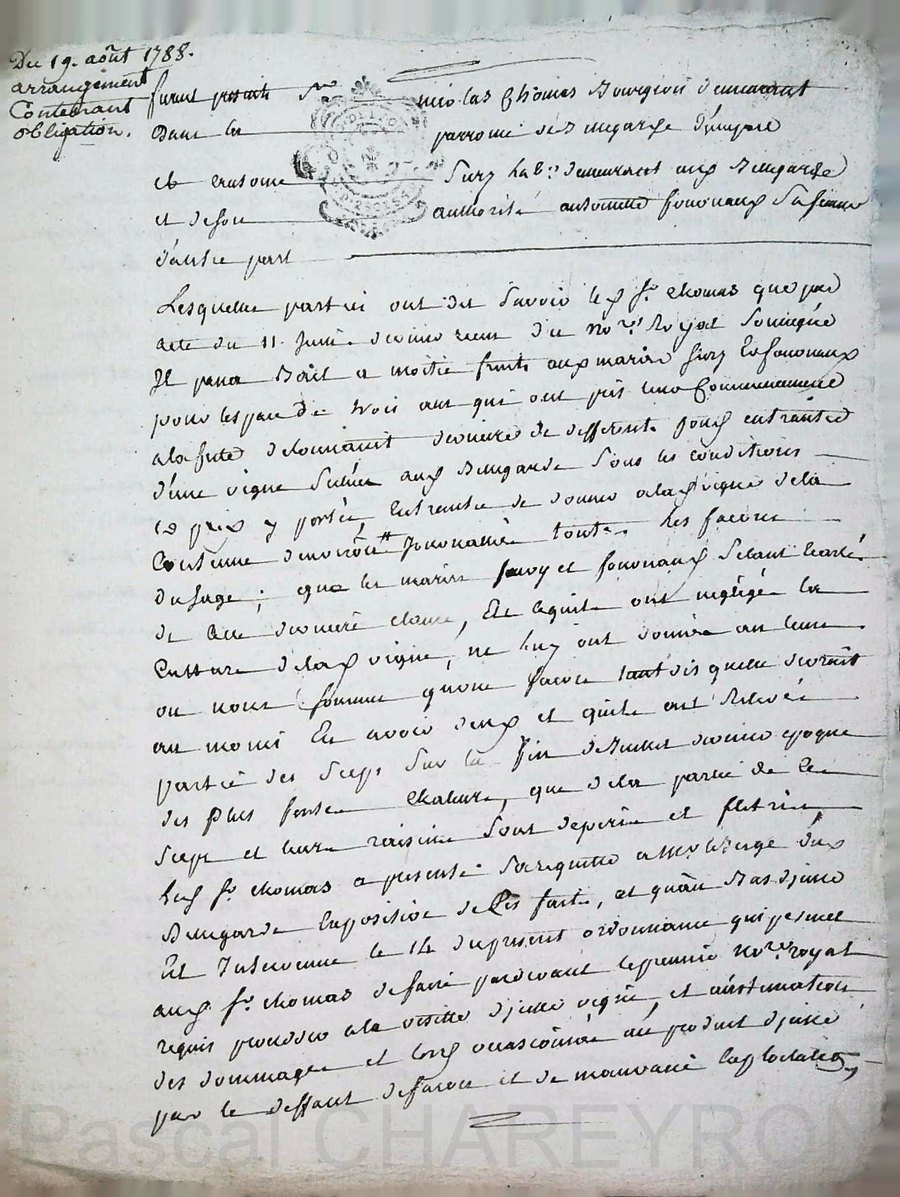 Du 19. août 1788.
arrangement
Contenant
obligation.
furent presents Sr nicolas Thomas Bourgeois demeurant
Dans la parroisse de Bengarde d'une part
et antoine Sury hab.t demeurant aud Bengarde
et de son authorité antoinette fononaux Sa femme
d'autre part
Lesquelles parties ont dit Savoir led Sr. thomas que par
acte du 11. Juin dernier reçu du no.re Royal Soussigné
Il passa Bail a moitié fruits aux mariés Sury et fononaux
pour l'espace de trois ans qui ont pris leur Commencement
a la fete de derniere de differents fonds
d'une vigne Située aud Bengarde Sous les conditions
et prix y portés, Entr'autre de donner a lad vigne de la
Contenue d'environ journallée toutes les façons
d'usage; que les mariés Sury et fononaux S'etant écartés
de cette derniere clause, Et ensuite ont negligé la
Culture de lad vigne, ne luy ont donné an leur
ou nous Sommes qu'une façon tandis qu'elle devroit
au moins En avoir deux et qu'ils ont Relevés
partie des Seps Sur la fin de Juillet dernier epoque
des plus fortes Chaleurs, que de la partie de Ces
Seps et leurs raisins Sont deperis et fletris
led Sr. thomas a presenté Sa requette a Mr. le Juge dud
Bengarde Expositive de Ces faits, et qu'au Bas d'icelle
Est Intervenue le 14 du present ordonnance qui permet
aud Sr. thomas de faire pardevant le premier no.re royal
requis proceder a la visitte d'icelle vigne, et a l'estimation
des dommages et torts occasionnés au produit d'icelle
par le deffaut de façon et de mauvaise Exploitation,
Pascal CHAREYRON